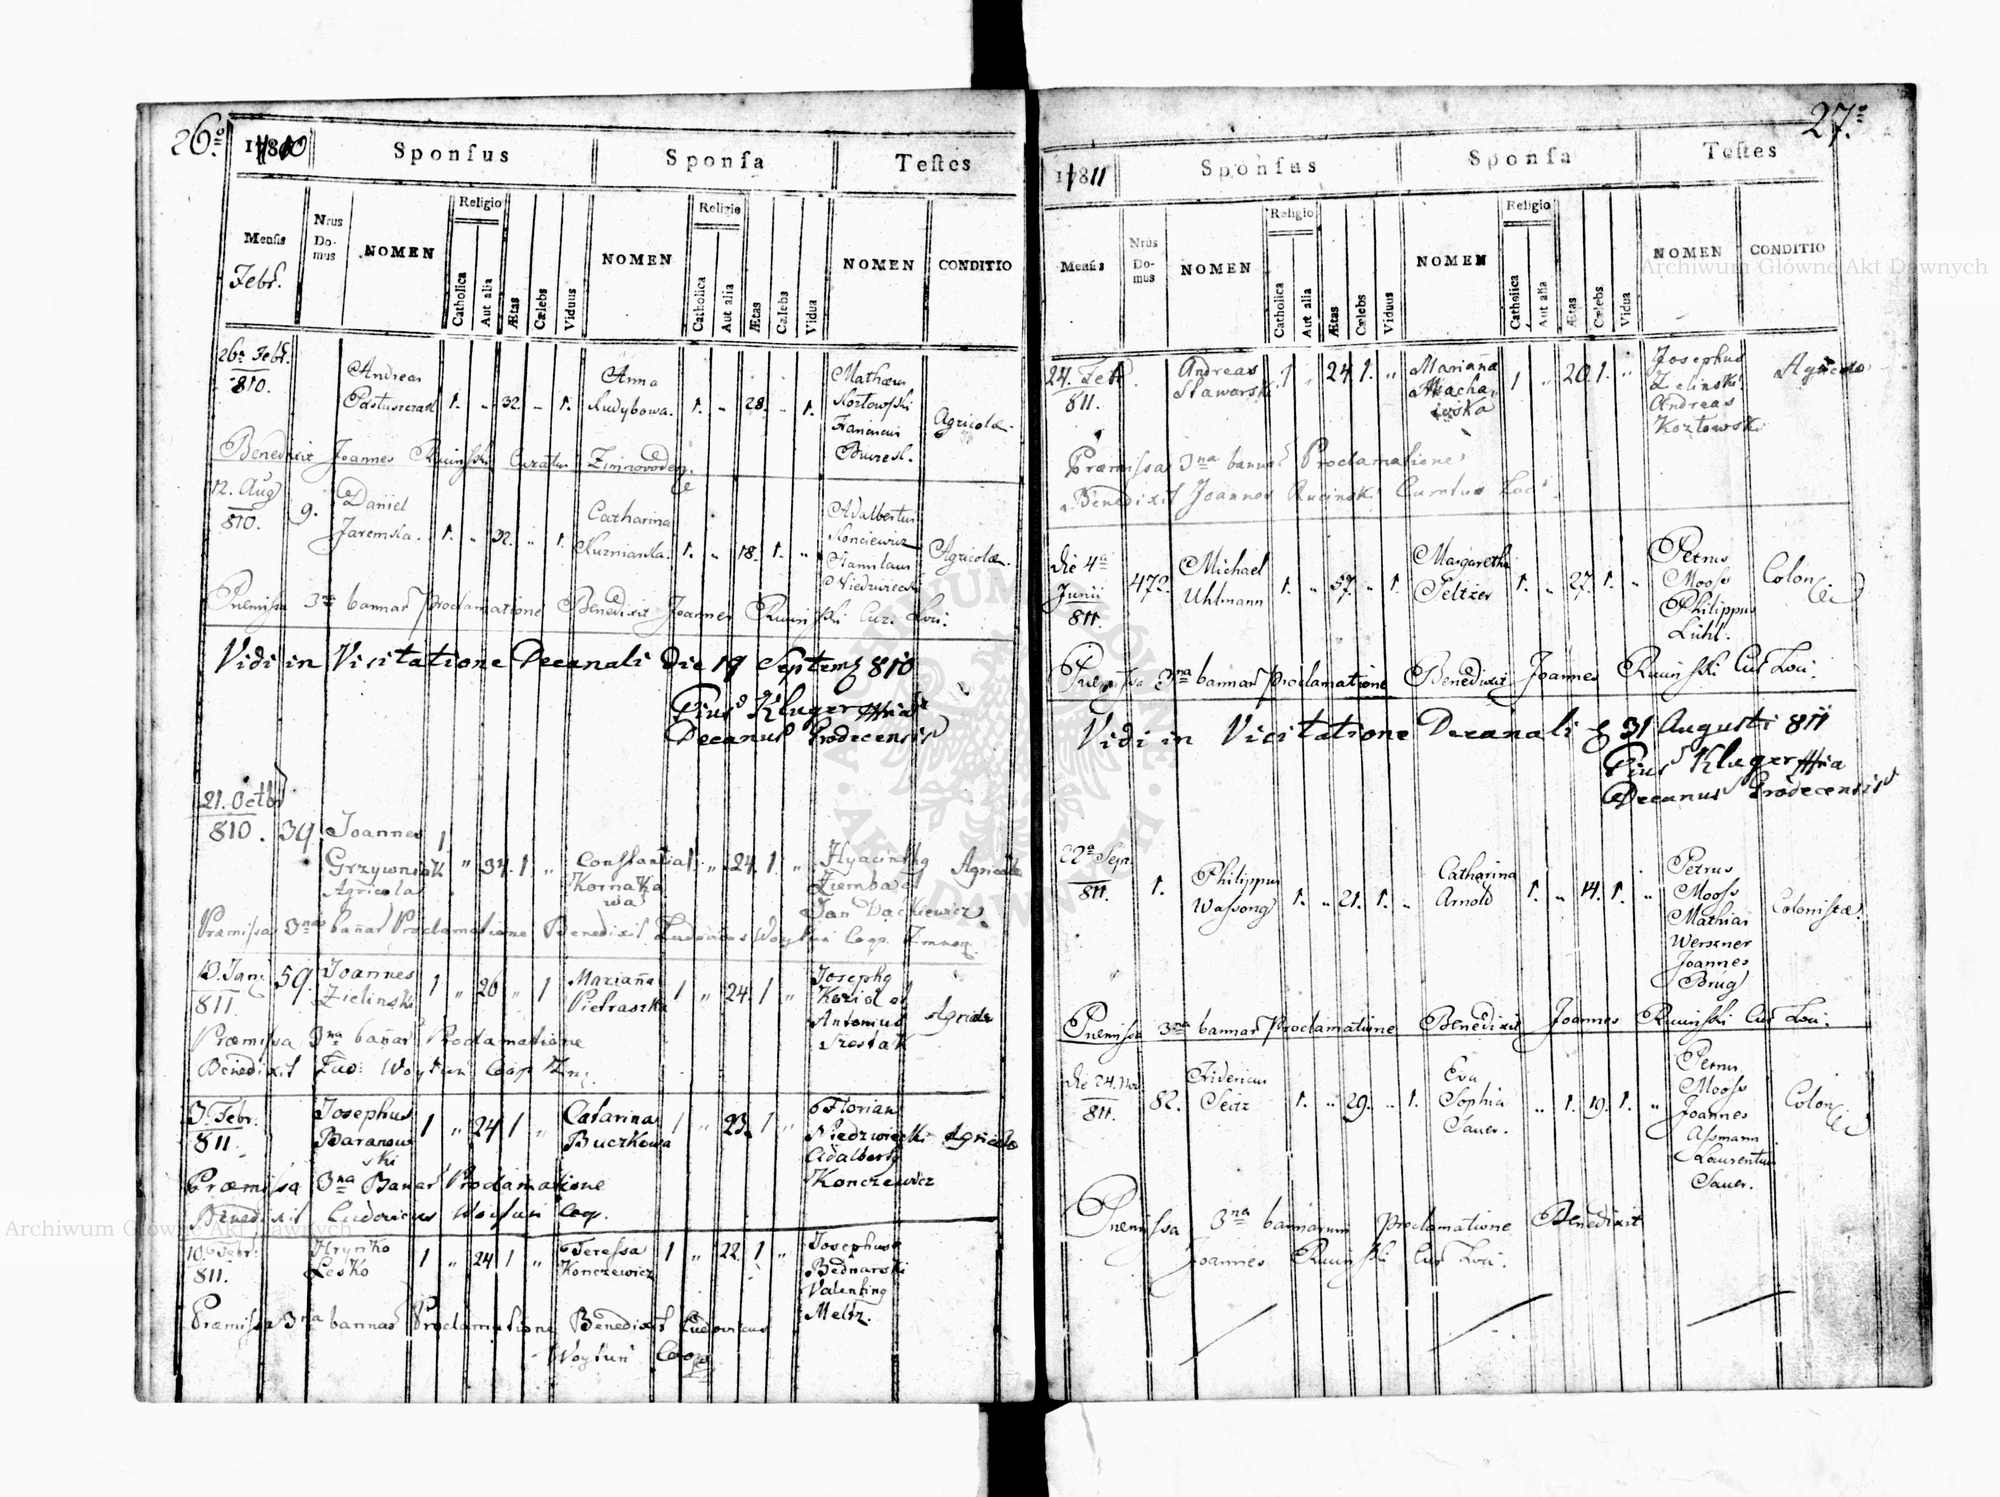 26º
1810
Sponſus
Sponſa
Teſtes
Menſis
Febr.
Nrus Do- mus
NOMEN
Religio
Catholica
Aut alia
Ætas
Cælebs
Viduus
NOMEN
Religio
Catholica
Aut alia
Ætas
Cælebs
Vidua
NOMEN
CONDITIO
26a Febr. 810.
Andreas 1. „ 32. „ 1.
Anna Kudybowa. 1. „ 28. „ 1.
Mathæus Kozłowski Franciscus
Agricolæ.
Benedixit Joannes Ruciński Curatus Zimnovoden.
12. Aug 810. 9.
Daniel Jaremka. 1. „ 32. „ 1.
Catharina Kuzniarska. 1. „ 18. 1. „
Adalbertus Konciewicz Stanislaus Niedzwiecki
Agricolæ.
Præmissa 3na bannar Proclamatione Benedixit Joannes Ruciński Cur. Loci.
Vidi in Visitatione Decanali die 19 Septemb 810
Pius Kluger mpria
Decanus Grodecensis
21. Octbr 810. 39.
Joannes Grzywniak Agricolas 1 „ 34. 1 „
Constantia Kornako wa 1. „ 24. 1. „
Hyacinthg Ziemba et Jan Wackiewicz.
Agricolæ
Præmissa 3na bañar Proclamatione Benedixit Ludovicus Woytuń Coop. Zimnoq.
13. Janῑ 811 59.
Joannes Zielinski 1 „ 26 „ 1
Mariaña Pietraszka 1 „ 24. 1 „
Josephg Koziol et Antonius Szostak
Agricolæ
Præmissa 3na bañar Proclamatione
Benedixit Lud: Woytuń Coop Zmq.
3. Febr: 811.
Josephus Baranow ski 1 „ 24 1 „
Catarina Buczkowa 1 „ 23. 1 „
Florian Niedzwiecki Adalbertg Konczewicz
Agricolæ
Præmissa 3na Bañar Proclamatione
Benedixit Ludovicus Woytuń Coop.
10. Febr: 811.
Hryńko Lesko 1 „ 24 1 „
Teressa Konczewicz 1 „ 22. 1 „
Josephus Bednarski Valenting Meltz.
Præmissa 3na bannar Proclamatione Benedixit Ludovicus
Woytuń Coop
27º.
1811
Sponſus
Sponſa
Teſtes
Menſis
Nrus Do- mus
NOMEN
Religio
Catholica
Aut alia
Ætas
Cælebs
Viduus
NOMEN
Religio
Catholica
Aut alia
Ætas
Cælebs
Vidua
NOMEN
CONDITIO
24. Feb 811.
Andreas Stawarski 1 „ 24 1. „
Mariana Machaiewska 1 „ 20. 1. „
Josephus Zelinski Andreas Kozłowski
Agricolæ
Præmissa 3na bannar Proclamatione
Benedixit Joannes Ruciński Curatus Loci.
Die 4a Junii 811. 472.
Michael Uhlmann 1. „ 57. „ 1.
Margaretha Peltzer 1. „ 27. 1. „
Petrus Mooss Philippus Lühl.
Colon
Præmissa 3na bannar Proclamatione Benedixit Joannes Ruciński Cur Loci.
Vidi in Visitatione Decanali 31 Augusti 811
Pius Kluger mpria
Decanus Grodecensis
22a Sepr. 811. 1.
Philippus Wassong 1. „ 21. 1. „
Catharina Arnold 1. „ 14. 1. „
Petrus Mooss Mathias Werszner Joannes Brüg
Colonistæ.
Præmissa 3na bannar Proclamatione Benedixit Joannes Ruciński Cur Loci.
Die 24. Nov 811. 82.
Fridericus Seitz 1. „ 29. „ 1.
Eva Sophia Sauer. „ 1. 19. 1. „
Petrus Mooss Joannes Assmann Laurentius Sauer.
Colon
Præmissa 3na bannarum Proclamatione Benedixit
Joannes Ruciński Cur Loci.
Archiwum Główne Akt Dawnych
Archiwum Główne Akt Dawnych
ARCHIWUM GŁÓWNE AKT DAWNYCH